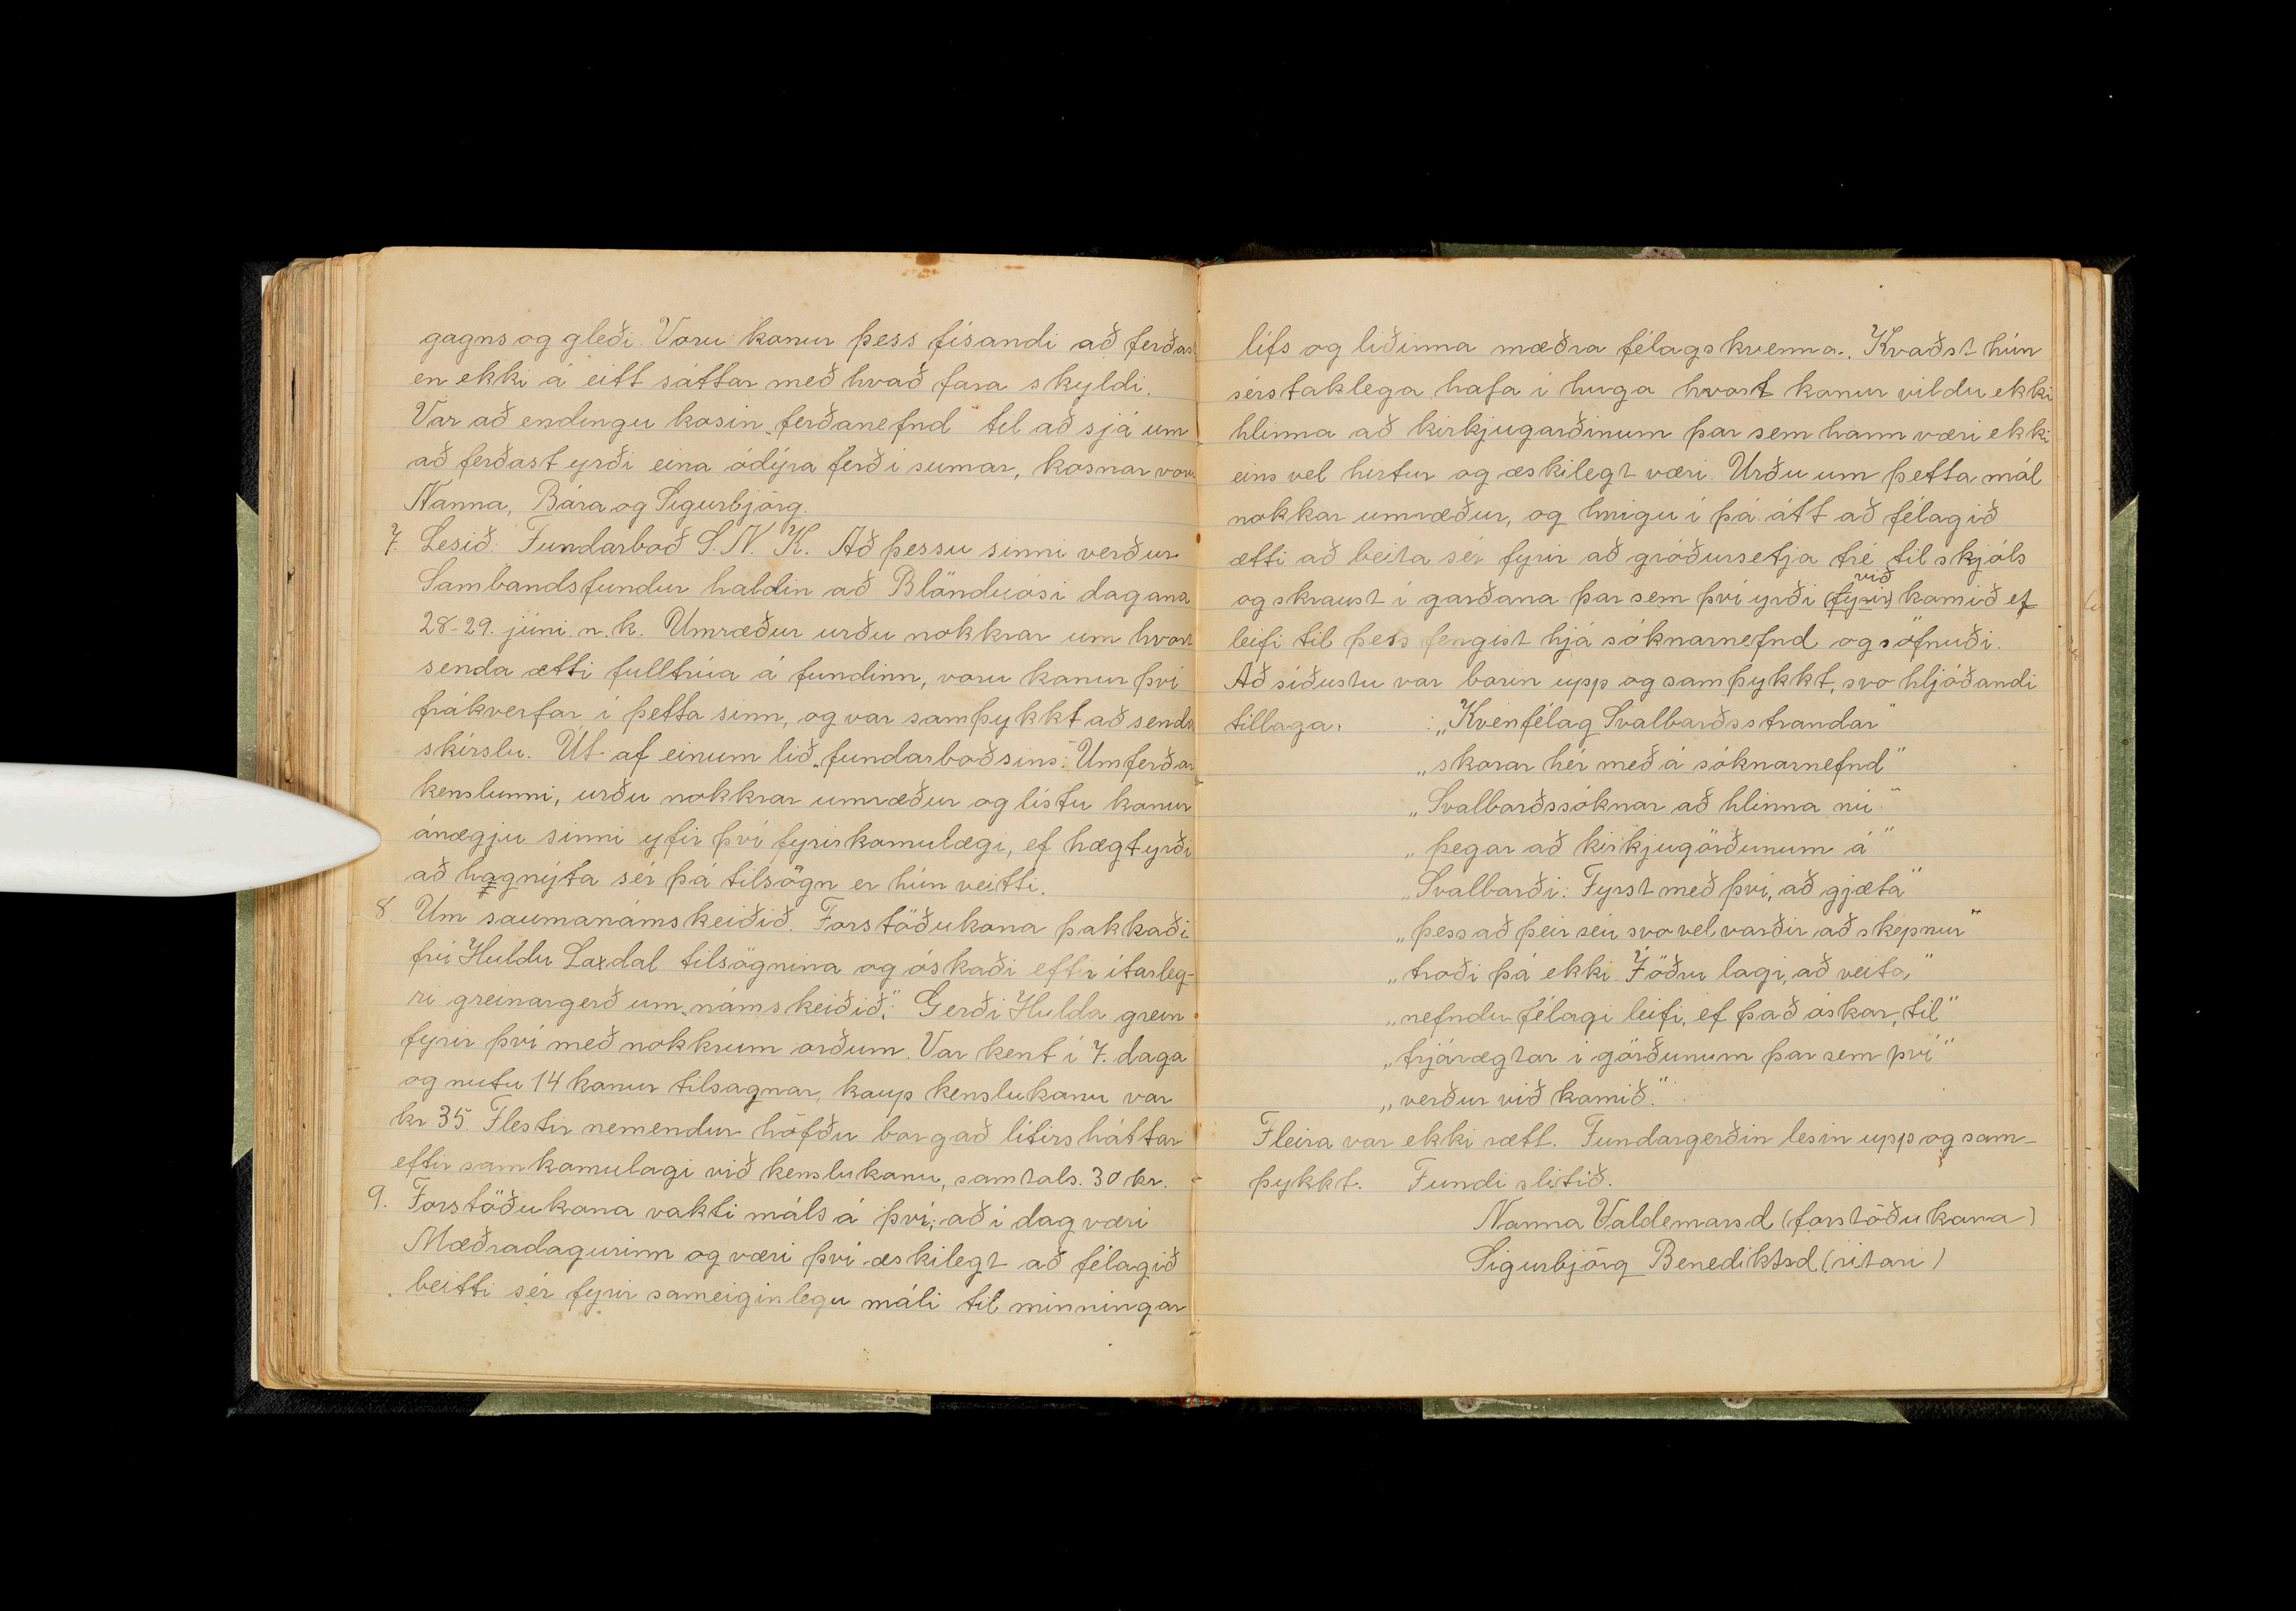 gagns og gleði. Voru konur þess físandi að ferðas
en ekki á eitt sáttar með hvað fara skyldi.
Var að endingu kosin „ferðanefnd" til að sjá um
að ferðast yrði eina ódýra ferð í sumar, kosnar voru
Nanna, Bára og Sigurbjörg.
7. Lesið: Fundarboð S. N. K. Að þessu sinni verður
Sambandsfundur haldin að Blönduósi dagana
28-29. júní n.k. Umræður urðu nokkrar um hvort
senda ætti fulltrúa á fundinn, voru konur því
fráhverfar í þetta sinn, og var samþykkt að senda
skírslu. Út af einum lið „fundarboðsins": Umferðar
kenslunni, urðu nokkrar umræður og lístu konur
ánægju sinni yfir því fyrirkomulægi, ef hægt yrði
að hagnýta sér þá tilsögn er hún veitti.
8. Um saumanámskeiðið. Forstöðukona þakkaði
frú Huldu Laxdal tilsögnina og óskaði eftir ítarleg-
ri greinargerð um „námskeiðið". Gerði Hulda grein
fyrir því með nokkrum orðum. Var kent í 7. daga
og nutu 14 konur tilsagnar, kaup kenslukonu var
kr 35. Flestir nemendur höfðu borgað lítirsháttar
eftir samkomulagi við kenslukonu, samtals. 30 kr.
9. Forstöðukona vakti máls á því, að í dag væri
Mæðradagurinn og væri því æskilegt að félagið
beitti sér fyrir sameiginlegu máli til minningar
lífs og liðinna mæðra félagskvenna. Kvaðst hún
sérstaklega hafa í huga hvort konur vildu ekki
hlinna að kirkjugarðinum þar sem hann væri ekki
eins vel hirtur og æskilegt væri. Urðu um þetta mál
nokkar umræður, og hnigu í þá átt að félagið
ætti að beita sér fyrir að gróðursetja tré til skjóls
og skraust í garðana þar sem því yrði (fyrir) við komið ef
leifi til þess fengist hjá sóknarnefnd og söfnuði.
Að síðustu var borin upp og samþykkt, svo hljóðandi
tillaga. : „Kvenfélag Svalbarðsstrandar"
„skorar hér með á sóknarnefnd"
„Svalbarðssóknar að hlinna nú"
„þegar að kirkjugörðunum á"
„Svalbarði: Fyrst með því, að gjæta"
„þess að þeir séu svo vel varðir að skepnur"
„troði þá ekki. Í öðru lagi, að veita,"
„nefndu félagi leifi, ef það óskar, til"
„trjáræktar í görðunum þar sem því"
„verður við komið."
Fleira var ekki rætt. Fundargerðin lesin upp og sam-
þykkt. Fundi slitið.
Nanna Valdemarsd (forstöðukona)
Sigurbjörg Benediktsd (ritari)